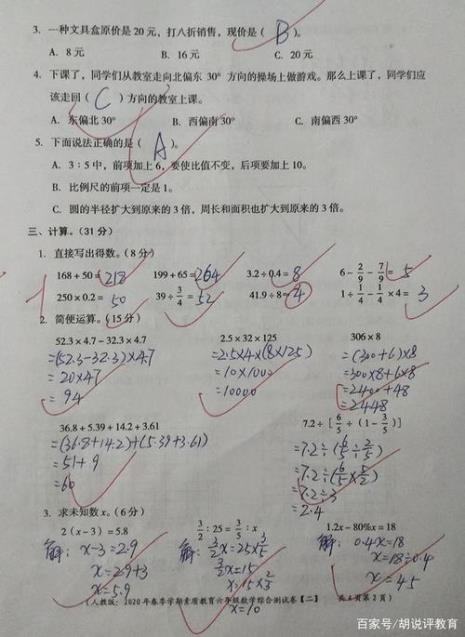 3. 一种文具盒原价是 20 元，打八折销售，现价是（ B ）。
A. 8 元 B. 16 元 C. 20 元
4. 下课了，同学们从教室走向北偏东 30° 方向的操场上做游戏。那么上课了，同学们应
该走回（ C ）方向的教室上课。
A. 东偏北 30° B. 西偏南 30° C. 南偏西 30°
5. 下面说法正确的是（ A ）。
A. 3∶5 中，前项加上 6，要使比值不变，后项要加上 10。
B. 比例尺的前项一定是 1。
C. 圆的半径扩大到原来的 3 倍，周长和面积也扩大到原来的 3 倍。
三、计算。（31 分）
1. 直接写出得数。（8 分）
168 + 50 = 218 199 + 65 = 264 3.2 ÷ 0.4 = 8 6 - 2/9 - 7/9 = 5
250 × 0.2 = 50 39 ÷ 3/4 = 52 41.9 ÷ 8 ≈ 4 1 ÷ 1/4 - 1/4 × 4 = 3
2. 简便运算。（15 分）
52.3 × 4.7 - 32.3 × 4.7 2.5 × 32 × 125 306 × 8
=(52.3-32.3)×4.7 =2.5×4×(8×125) =(300+6)×8
=20×4.7 =10×1000 =300×8+6×8
=94 =10000 =2400+48
=2448
36.8 + 5.39 + 14.2 + 3.61 7.2 ÷ [ 6/5 ÷ (1 - 3/5)
=(36.8+14.2)+(5.39+3.61) =7.2÷(6/5÷2/5)
=51+9 =7.2÷(6/5×5/2)
=60 =7.2÷3
=2.4
3. 求未知数 x。（6 分）
2(x - 3) = 5.8 3/2 : 25 = 3/5 : x 1.2x - 80%x = 18
解: x-3=2.9 解: 3/2x=25×3/5 解: 0.4x=18
x=2.9+3 3/2x=15 x=18÷0.4
x=5.9 x=15×2/3 x=45
x=10
（人教版：2020 年春季学期素质教育六年级数学综合测试卷【二】 共4页第2页）
百家号/胡说评教育